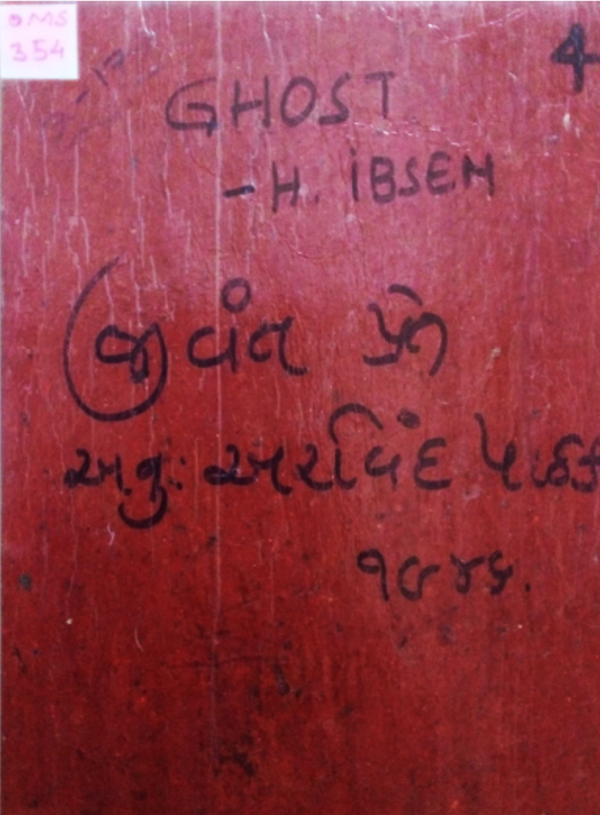 DMS
354
4
GHOST
- H. IBSEN
જીવંત પ્રેત
અનુ: અરવિંદ પાઠક
૧૯૪૬.